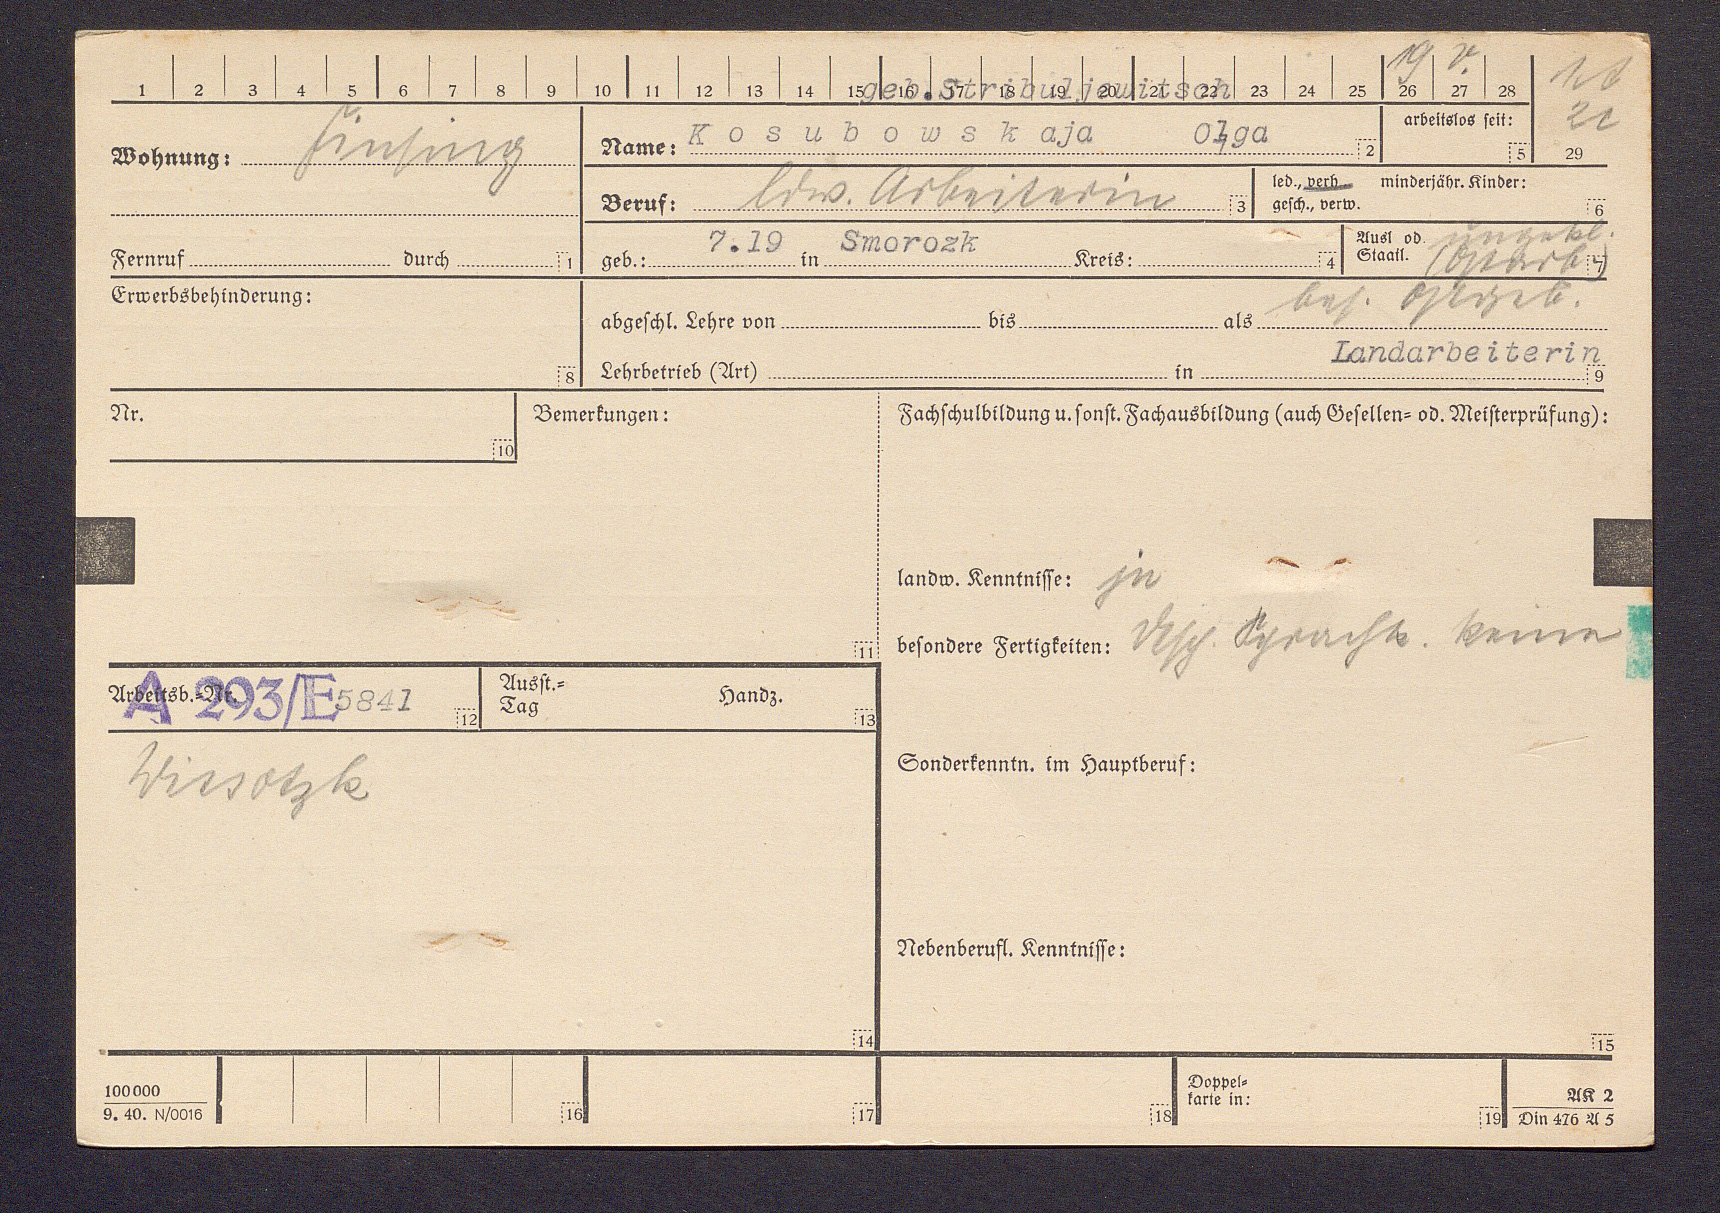 19 v.
1 2 3 4 5 6 7 8 9 10 11 12 13 14 15 16 17 18 19 20 21 22 23 24 25 26 27 28
geb. Stribuljewitsch
Wohnung: Finsing
Name: Kosubowskaja Olga 2
arbeitslos seit: 5
29
Beruf: ldw. Arbeiterin 3
led., verh. minderjähr. Kinder:
gesch., verw. 6
Fernruf durch 1
geb.: 7.19 in Smorozk Kreis: 4
Ausl od. ungekl.
Staatl. (Ostarb.) 7
Erwerbsbehinderung: 8
bes. Ostgeb.
abgeschl. Lehre von bis als
Landarbeiterin
Lehrbetrieb (Art) in 9
Nr. 10
Bemerkungen: 11
Fachschulbildung u. sonst. Fachausbildung (auch Gesellen= od. Meisterprüfung):
landw. Kenntnisse: ja
besondere Fertigkeiten: dtsch. Sprachk. keine
Arbeitsb.=Nr. A 293/E 5841 12
Ausst.=
Tag Handz. 13
Wissotzk
14
Sonderkenntn. im Hauptberuf:
Nebenberufl. Kenntnisse:
15
100000
9. 40. N/0016
16 17 18
Doppel=
karte in: 19
AK 2
Din 476 A 5